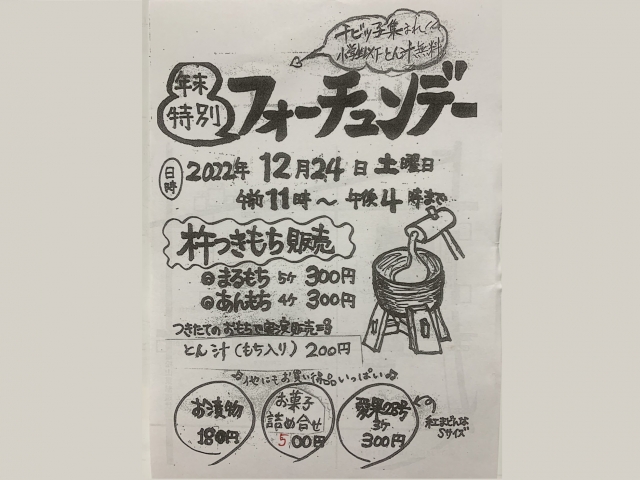 チビッ子集まれ!
小学生以下とん汁無料
年末
特別
フォーチュンデー
日時
2022年 12月24日 土曜日
午前11時〜午後4時まで
杵つきもち販売
まるもち 5ケ 300円
あんもち 4ケ 300円
つきたてのおもちを実演販売
とん汁(もち入り) 200円
他にもお買い得品いっぱい
お漬物
180円
お菓子
詰め合せ
500円
愛果28号
3ケ
300円
紅まどんな
Sサイズ